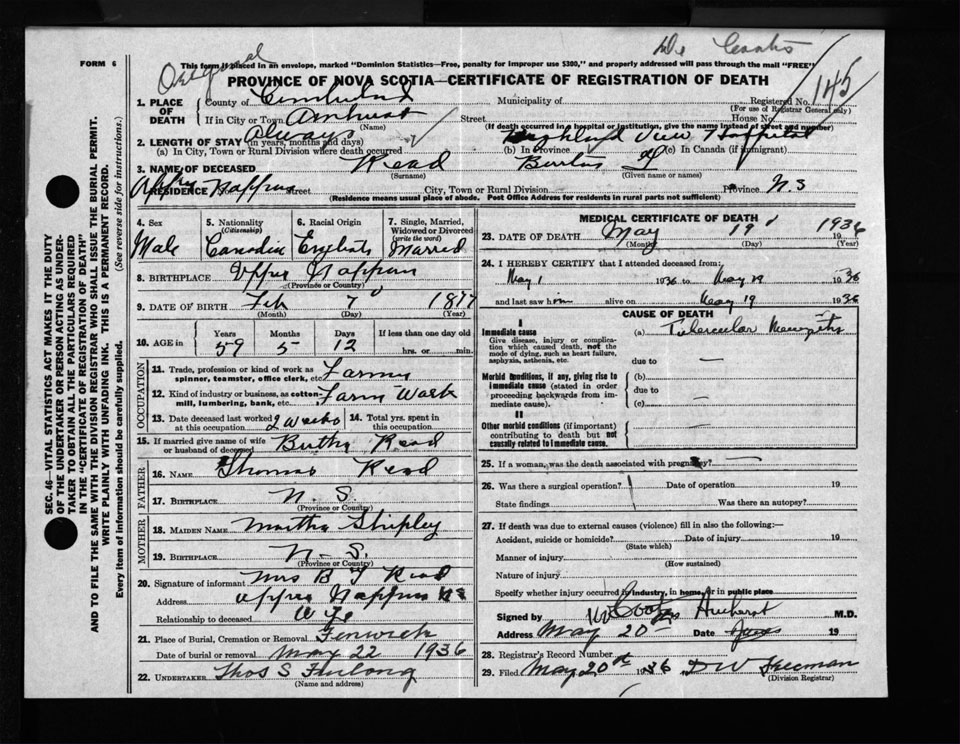 FORM 6
Original
Dr Coates
This form if placed in an envelope, marked "Dominion Statistics—Free, penalty for improper use $300," and properly addressed will pass through the mail "FREE"
PROVINCE OF NOVA SCOTIA—CERTIFICATE OF REGISTRATION OF DEATH
145
1. PLACE OF DEATH
County of Cumberland Municipality of
Registered No.
(For use of Registrar General only)
If in City or Town Amherst Street House No.
(Name) (If death occurred in a hospital or institution, give the name instead of street and number)
Highland View Hospital
2. LENGTH OF STAY (in years, months and days)
Always
(a) In City, Town or Rural Division where death occurred (b) In Province (c) In Canada (if immigrant)
3. NAME OF DECEASED Read Burton
(Surname) (Given name or names)
RESIDENCE No. Upper Nappan Street City, Town or Rural Division Province N.S
(Residence means usual place of abode. Post Office Address for residents in rural parts not sufficient)
4. Sex
Male
5. Nationality
(Citizenship)
6. Racial Origin
7. Single, Married, Widowed or Divorced
(write the word)
Married
8. BIRTHPLACE Upper Nappan
(Province or Country)
9. DATE OF BIRTH Feb 7 1877
(Month) (Day) (Year)
10. AGE in
Years Months Days If less than one day old
59 5 12 hrs. or min.
OCCUPATION
11. Trade, profession or kind of work as spinner, teamster, office clerk, etc. Farmer
12. Kind of industry or business, as cotton-mill, lumbering, bank, etc. Farm Work
13. Date deceased last worked at this occupation 2 weeks
14. Total yrs. spent in this occupation
15. If married give name of wife or husband of deceased Bertha Read
FATHER
16. NAME Thomas Read
17. BIRTHPLACE N. S.
(Province or Country)
MOTHER
18. MAIDEN NAME Martha Shipley
19. BIRTHPLACE N. S.
(Province or Country)
20. Signature of informant Mrs B Read
Address Upper Nappan NS
Relationship to deceased Wife
21. Place of Burial, Cremation or Removal Fenwick
Date of burial or removal May 22 1936
22. UNDERTAKER Thos S Furlong
(Name and address)
MEDICAL CERTIFICATE OF DEATH
23. DATE OF DEATH May 19 1936
(Month) (Day) 19 (Year)
24. I HEREBY CERTIFY that I attended deceased from:
May 1 1936 to May 19 1936
and last saw him alive on May 19 1936
CAUSE OF DEATH
I
Immediate cause
Give disease, injury or complication which caused death, not the mode of dying, such as heart failure, asphyxia, asthenia, etc.
(a) Tubercular Meningitis
due to —
Morbid conditions, if any, giving rise to immediate cause (stated in order proceeding backwards from immediate cause).
(b)
due to —
(c)
II
Other morbid conditions (if important) contributing to death but not causally related to immediate cause.
25. If a woman, was the death associated with pregnancy? —
26. Was there a surgical operation? Date of operation 19
State findings Was there an autopsy?
27. If death was due to external causes (violence) fill in also the following:—
Accident, suicide or homicide? Date of injury 19
(State which)
Manner of injury
(How sustained)
Nature of injury
Specify whether injury occurred in industry, in home, or in public place
Signed by Coates Amherst M.D.
Address May 20 Date 19
28. Registrar's Record Number
29. Filed May 20th 1936 D W Freeman
(Division Registrar)
SEC. 46—VITAL STATISTICS ACT MAKES IT THE DUTY
OF THE UNDERTAKER OR PERSON ACTING AS UNDER-
TAKER TO OBTAIN ALL THE PARTICULARS REQUIRED
IN THE "CERTIFICATE OF REGISTRATION OF DEATH"
AND TO FILE THE SAME WITH THE DIVISION REGISTRAR WHO SHALL ISSUE THE BURIAL PERMIT.
WRITE PLAINLY WITH UNFADING INK. THIS IS A PERMANENT RECORD.
Every item of information should be carefully supplied. (See reverse side for instructions.)